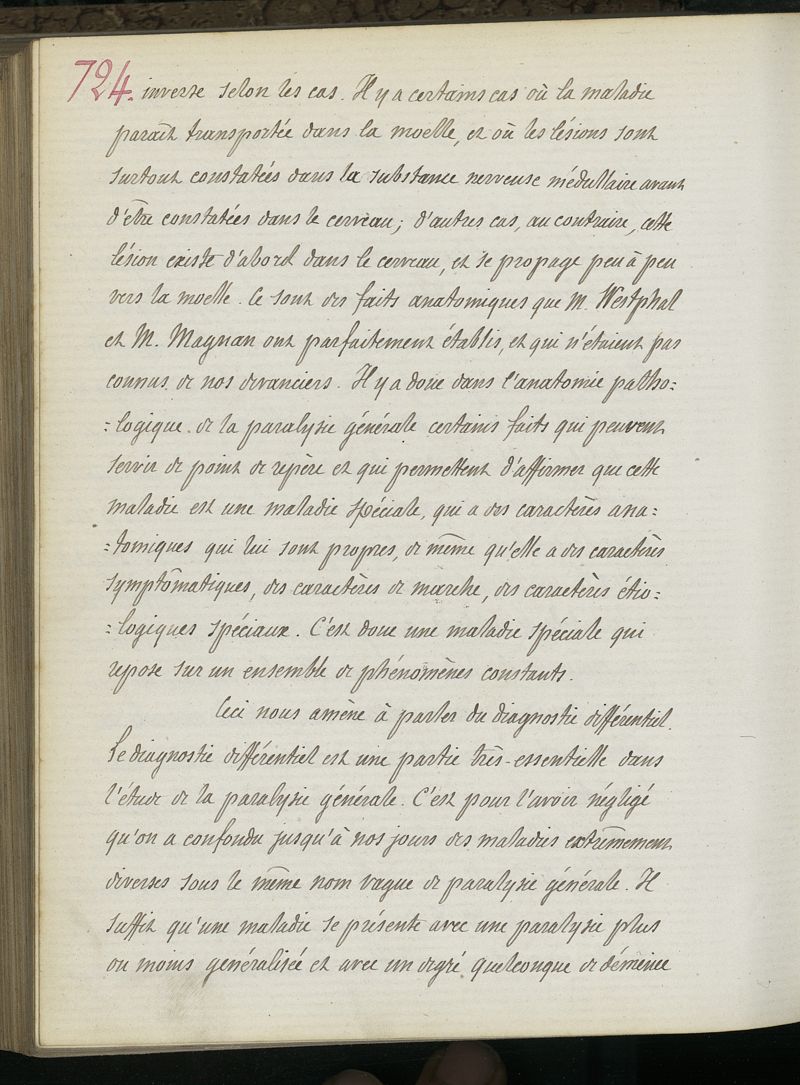 724. inverse selon les cas. Il y a certains cas où la maladie
paraît transportée dans la moelle, et où les lésions sont
surtout constatées dans la substance nerveuse médullaire avant
d'être constatées dans le cerveau; d'autres cas, au contraire, cette
lésion existe d'abord dans le cerveau, et se propage peu à peu
vers la moelle. Ce sont des faits anatomiques que M. Westphal
et M. Magnan ont parfaitement établis, et qui n'étaient pas
connus de nos devanciers. Il y a donc dans l'anatomie patho=
=logique de la paralysie générale certains faits qui peuvent
servir de point de repère et qui permettent d'affirmer que cette
maladie est une maladie spéciale, qui a des caractères ana=
=tomiques qui lui sont propres, de même qu'elle a des caractères
symptômatiques, des caractères de marche, des caractères étio=
=logiques spéciaux. C'est donc une maladie spéciale qui
repose sur un ensemble de phénomènes constants.
Ceci nous amène à parler du diagnostic différentiel.
Le diagnostic différentiel est une partie très-essentielle dans
l'étude de la paralysie générale. C'est pour l'avoir négligé
qu'on a confondu jusqu'à nos jours des maladies extrêmement
diverses sous le même nom vague de paralysie générale. Il
suffit qu'une maladie se présente avec une paralysie plus
ou moins généralisée et avec un degré quelconque de démence